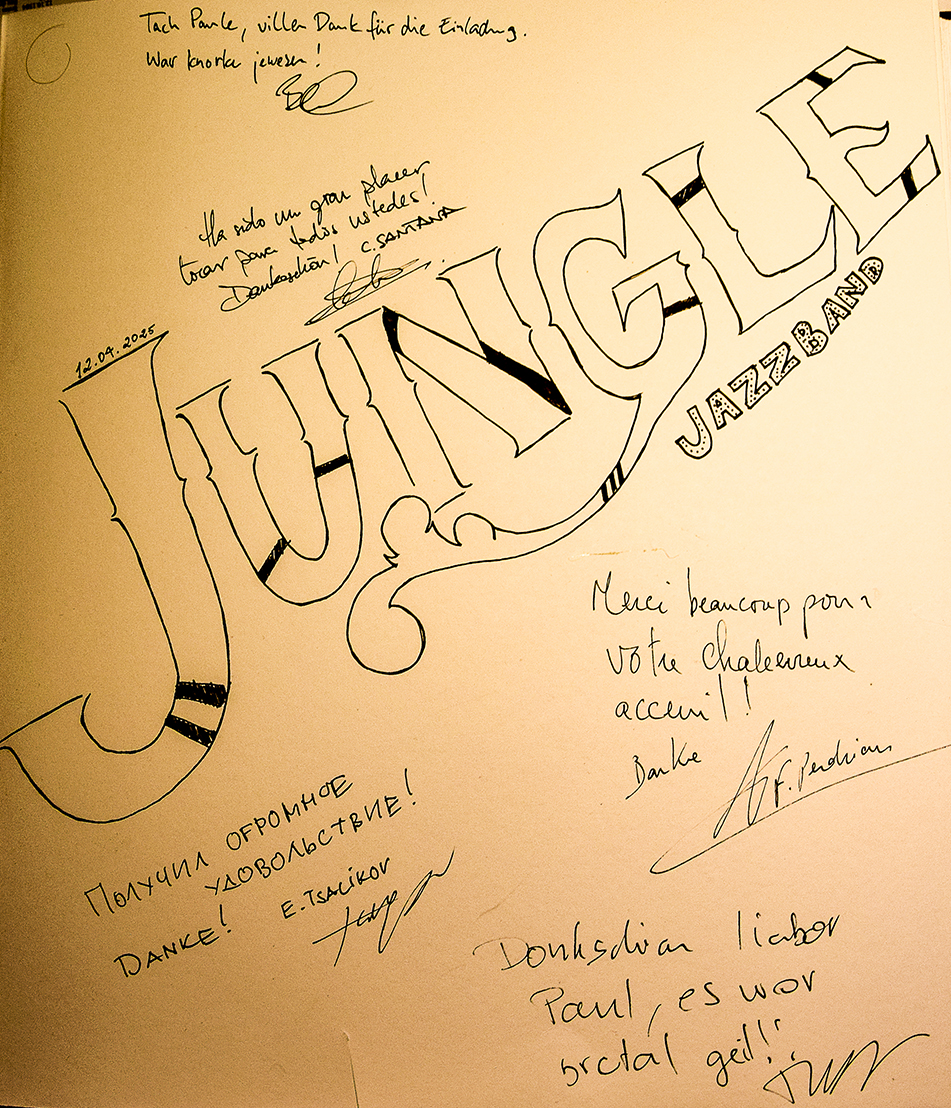 Tach Paule, villen Dank für die Einladung.
War knorke jewesen!
Ha sido un gran placer
tocar para todos ustedes!
Dankeschön! C. SANTANA
12.04.2025
JUNGLE
JAZZBAND
Merci beaucoup pour
votre chaleureux
acceuil!
Danke
F. Perdrian
ПОЛУЧИЛ ОГРОМНОЕ
УДОВОЛЬСТВИЕ!
DANKE! E. TSALIKOV
Donkschian liabor
Paul, es wor
bretal geil!